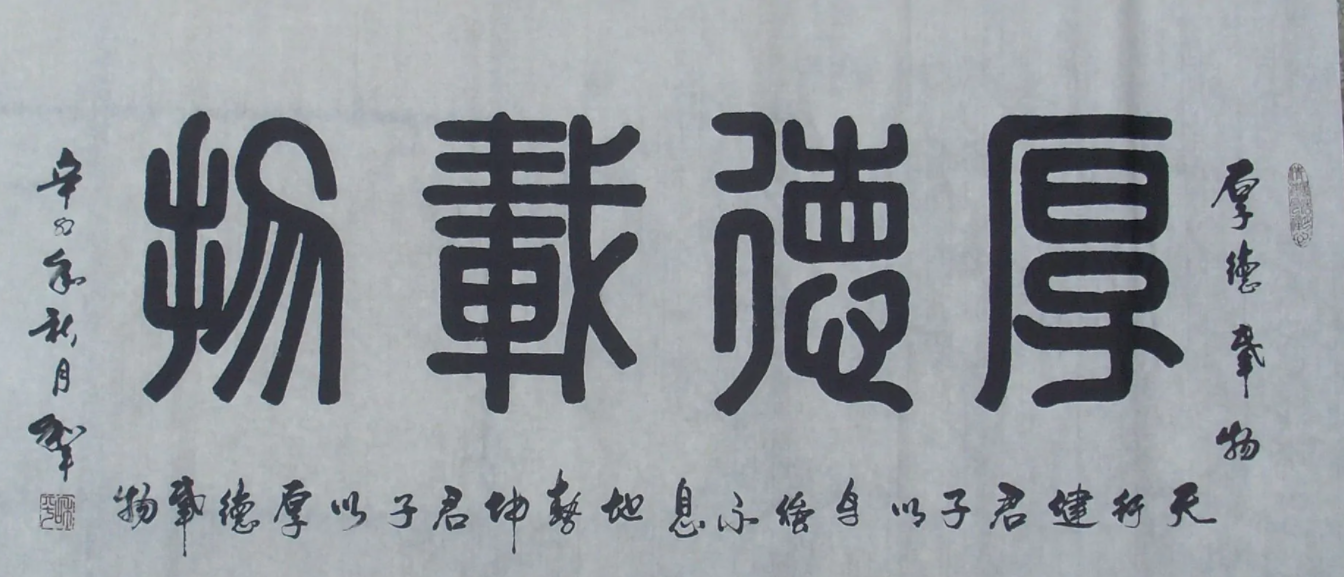 厚德載物
厚德載物
天行健君子以自强不息地勢坤君子以厚德載物
辛卯年秋月